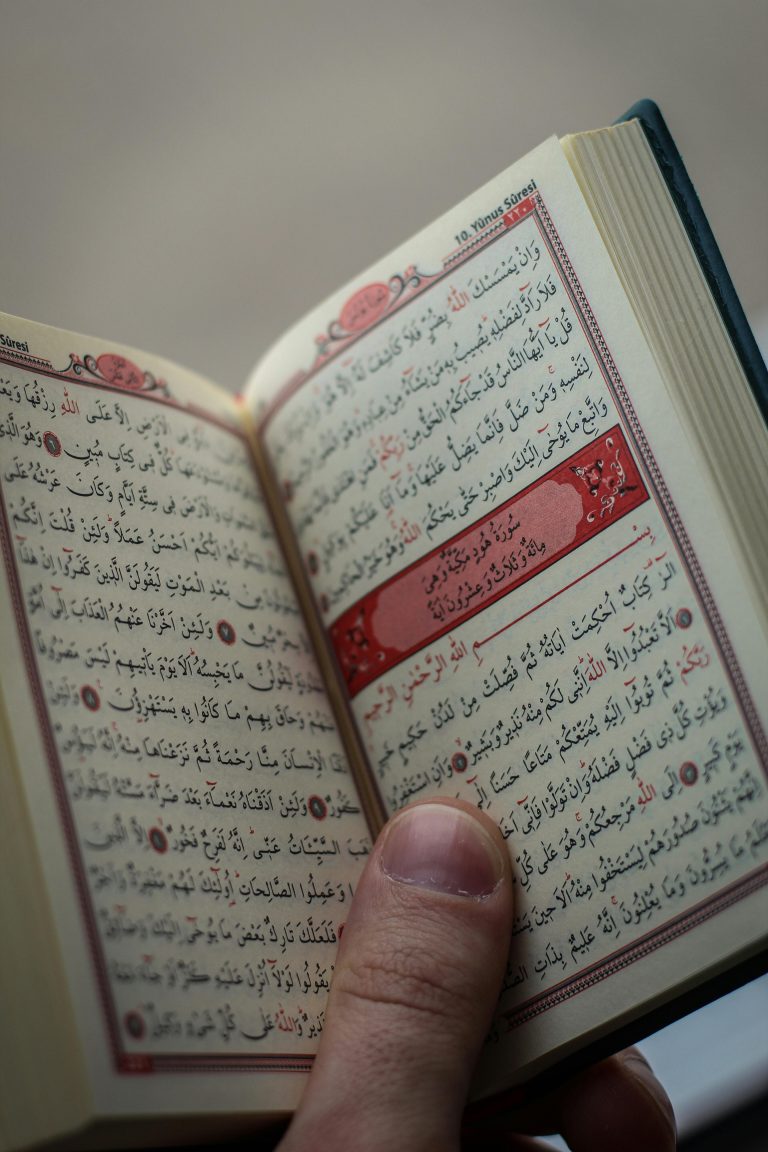 10. Yûnus Sûresi
٢٢٠
وَاِنْ يَمْسَسْكَ اللّٰهُ بِضُرٍّ فَلَا كَاشِفَ لَهُٓ اِلَّا هُوَ
فَلَا رَٓادَّ لِفَضْلِهٖ يُصٖيبُ بِهٖ مَنْ يَشَٓاءُ مِنْ عِبَادِهٖ وَهُوَ
قُلْ يَٓا اَيُّهَا النَّاسُ قَدْ جَٓاءَكُمُ الْحَقُّ مِنْ رَبِّكُمْ فَمَنِ
لِنَفْسِهٖ وَمَنْ ضَلَّ فَاِنَّمَا يَضِلُّ عَلَيْهَا وَمَٓا اَنَا عَلَيْكُمْ بِوَكٖيلٍ
وَاتَّبِعْ مَا يُوحٰٓى اِلَيْكَ وَاصْبِرْ حَتّٰى يَحْكُمَ اللّٰهُ وَهُوَ خَيْرُ الْحَاكِمٖينَ
سُورَةُ هُودٍ مَكِّيَّةٌ وَهِيَ
مِائَةٌ وَثَلَاثٌ وَعِشْرُونَ اٰيَةً
بِسْمِ اللّٰهِ الرَّحْمٰنِ الرَّحٖيمِ
الٓرٰ كِتَابٌ اُحْكِمَتْ اٰيَاتُهُ ثُمَّ فُصِّلَتْ مِنْ لَدُنْ حَكٖيمٍ خَبٖيرٍ
اَلَّا تَعْبُدُٓوا اِلَّا اللّٰهَ اِنَّنٖي لَكُمْ مِنْهُ نَذٖيرٌ وَبَشٖيرٌ وَاَنِ اسْتَغْفِرُوا
رَبَّكُمْ ثُمَّ تُوبُٓوا اِلَيْهِ يُمَتِّعْكُمْ مَتَاعًا حَسَنًا اِلٰٓى
وَيُؤْتِ كُلَّ ذٖي فَضْلٍ فَضْلَهُ وَاِنْ تَوَلَّوْا فَاِنّٖٓي
يَوْمٍ كَبٖيرٍ اِلَى اللّٰهِ مَرْجِعُكُمْ وَهُوَ عَلٰى كُلِّ
اِنَّهُمْ يَثْنُونَ صُدُورَهُمْ لِيَسْتَخْفُوا مِنْهُ اَلَا حٖينَ
يَعْلَمُ مَا يُسِرُّونَ وَمَا يُعْلِنُونَ اِنَّهُ عَلٖيمٌ بِذَاتِ
Sûresi
الْاَرْضِ اِلَّا عَلَى اللّٰهِ رِزْقُهَا
كُلٌّ فٖي كِتَابٍ مُبٖينٍ وَهُوَ الَّذٖي
وَالْاَرْضَ فٖي سِتَّةِ اَيَّامٍ وَكَانَ عَرْشُهُ عَلَى
اَيُّكُمْ اَحْسَنُ عَمَلًا وَلَئِنْ قُلْتَ اِنَّكُمْ
بَعْدِ الْمَوْتِ لَيَقُولَنَّ الَّذٖينَ كَفَرُٓوا اِنْ هٰذَٓا
مُبٖينٌ وَلَئِنْ اَخَّرْنَا عَنْهُمُ الْعَذَابَ اِلٰٓى اُمَّةٍ
لَيَقُولُنَّ مَا يَحْبِسُهُ اَلَا يَوْمَ يَأْتٖيهِمْ لَيْسَ مَصْرُوفًا
وَحَاقَ بِهِمْ مَا كَانُوا بِهٖ يَسْتَهْزِؤُنَ وَلَئِنْ
الْاِنْسَانَ مِنَّا رَحْمَةً ثُمَّ نَزَعْنَاهَا مِنْهُ اِنَّهُ لَيَؤُسٌ
كَفُورٌ وَلَئِنْ اَذَقْنَاهُ نَعْمَٓاءَ بَعْدَ ضَرَّٓاءَ مَسَّتْهُ لَيَقُولَنَّ
السَّيِّـَٔاتُ عَنّٖي اِنَّهُ لَفَرِحٌ فَخُورٌ اِلَّا الَّذٖينَ
وَعَمِلُوا الصَّالِحَاتِ اُو۬لٰٓئِكَ لَهُمْ مَغْفِرَةٌ وَاَجْرٌ
فَلَعَلَّكَ تَارِكٌ بَعْضَ مَا يُوحٰٓى اِلَيْكَ وَضَٓائِقٌ
يَقُولُوا لَوْلَٓا اُنْزِلَ عَلَيْهِ كَنْزٌ اَوْ جَٓاءَ مَعَهُ
نَذٖيرٌ وَاللّٰهُ عَلٰى كُلِّ شَيْءٍ وَكٖيلٌ